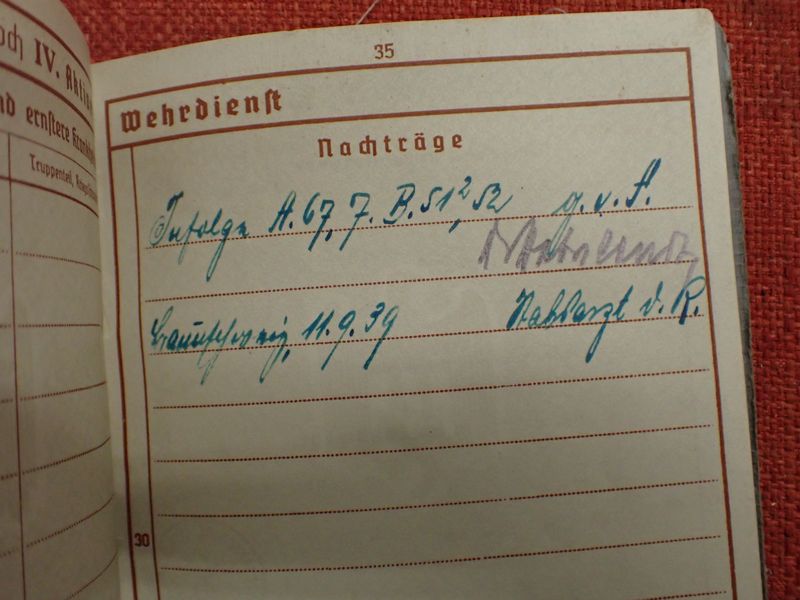 35
och IV. Akti
nd ernstere Krankh
Truppenteil, Kriegs
Wehrdienst
Nachträge
Infolge A. 67, 7. B. 51², 52 g. v. F.
Braunschweig, 11. 9. 39 Stabsarzt d. R.
30